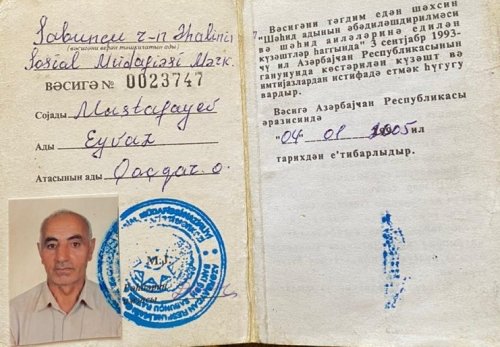 Sabunçu r-n Əhalinin
(вәсигәни верән тәшкилатын ады)
Sosial Müdafiəsi Mərk.
ВӘСИГӘ № 0023747
Сојады Mustafayev
Ады Eyvaz
Атасынын ады Qaşdar o.
М.Ј.
Вәсигәни тәгдим едән шәхсин
"Шәһид адынын әбәдиләшдирилмәси
вә шәһид аиләләринә едилән
күзәштләр һаггында" 3 сентјабр 1993-
чү ил Азәрбајҹан Республикасынын
ганунунда көстәрилән күзәшт вә
имтијазлардан истифадә етмәк һүгугу
вардыр.
Вәсигә Азәрбајҹан Республикасы
әразисиндә
"04" 01 2005 ил
тарихдән е'тибарлыдыр.